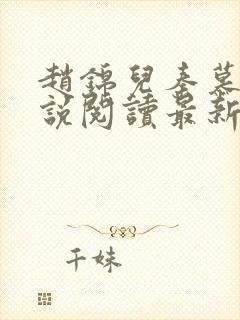 趙錦兒秦慕
說閱讀最新
千妹